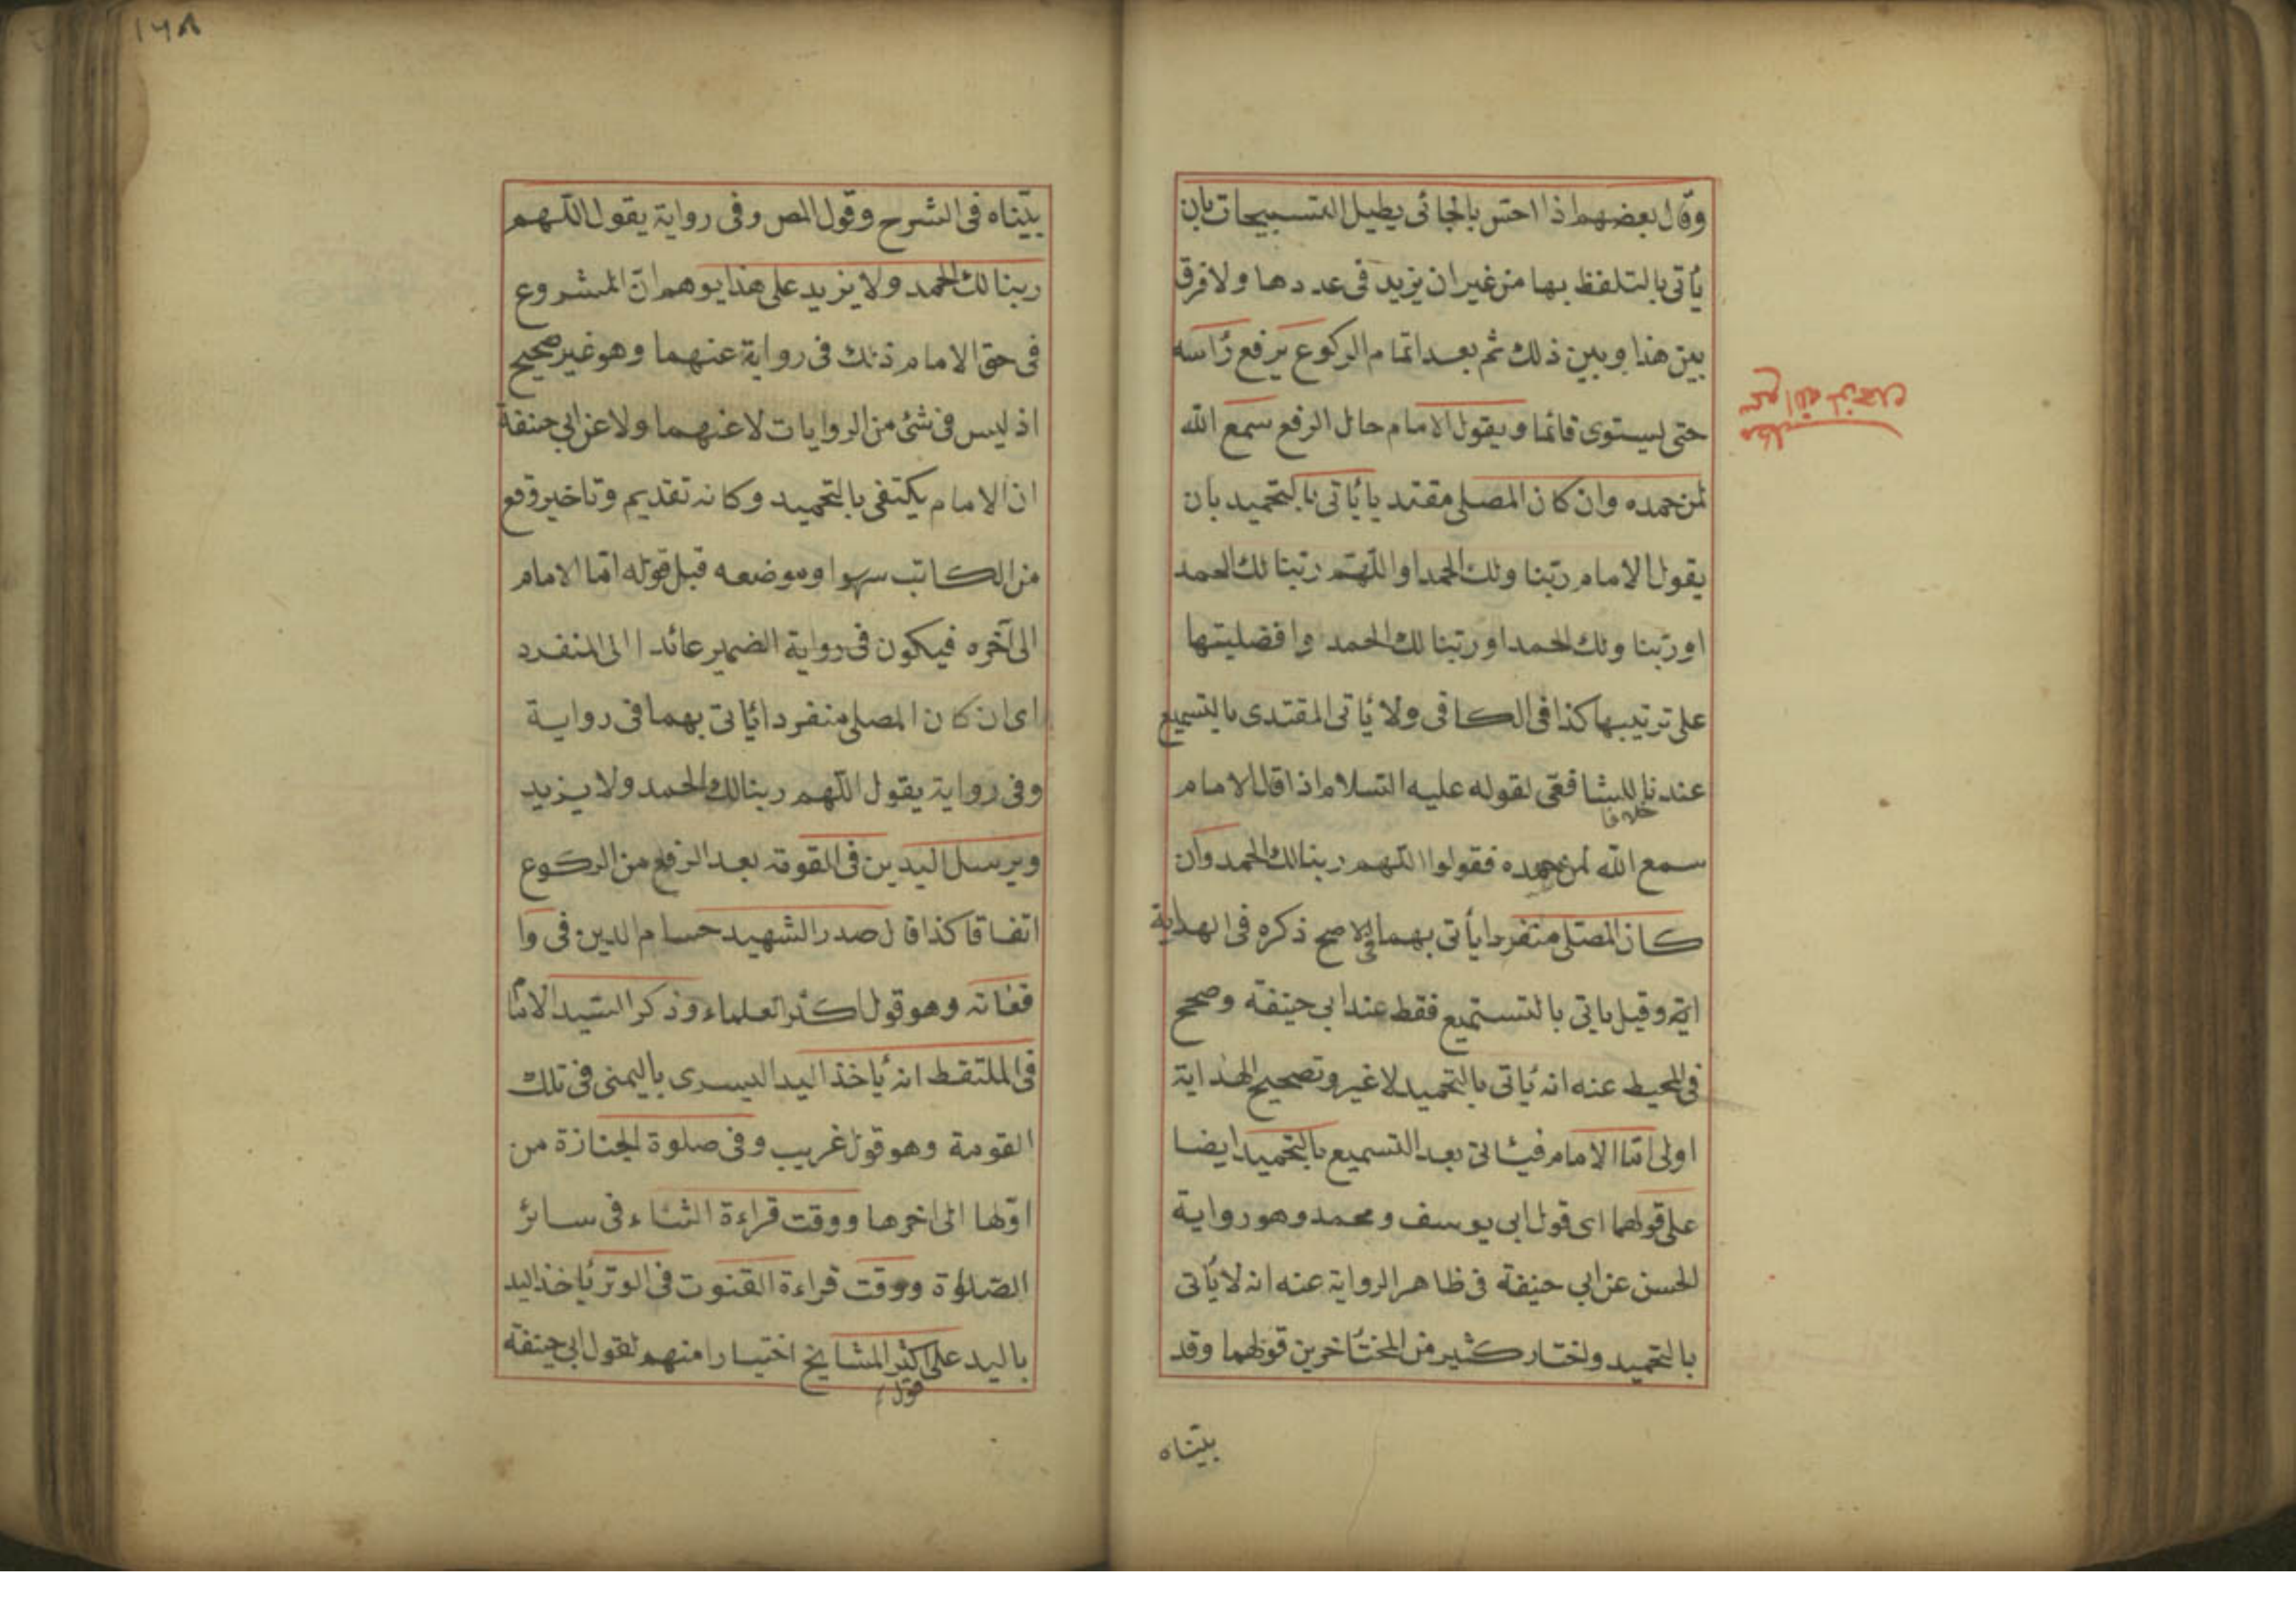 وقال بعضهم اذا احس بالجائى يطيل التسبيحات بان
يأتى بالتلفظ بها من غير ان يزيد فى عددها ولا فرق
بين هذا وبين ذلك ثم بعد اتمام الركوع يرفع رأسه
حتى يستوى قائما ويقول الامام حال الرفع سمع الله
لمن حمده وان كان المصلى مقتديا يأتى بالتحميد بان
يقول الامام ربنا ولك الحمد او اللهم ربنا لك الحمد
او ربنا ولك الحمد او ربنا لك الحمد وافضليتها
على ترتيبها كذا فى الكافى ولا يأتى المقتدى بالتسميع
عندنا للشافعى لقوله عليه السلام اذا قال الامام
خلافا
سمع الله لمن حمده فقولوا اللهم ربنا لك الحمد وان
كان المصلى منفردا يأتى بهما فى الاصح ذكره فى الهداية
اية وقيل يأتى بالتسميع فقط عند ابى حنيفة وصحح
فى المحيط عنه انه يأتى بالتحميد لا غير وتصحيح الهداية
اولى اما الامام فيأتى بعد التسميع بالتحميد ايضا
على قولهما اى قول ابى يوسف ومحمد وهو رواية
الحسن عن ابى حنيفة فى ظاهر الرواية عنه انه لا يأتى
بالتحميد واختار كثير من المتأخرين قولهما وقد
بيناه
سمع الله لمن حمده
مطلب
١٦٨
بيناه فى الشرح وقول المص وفى رواية يقول اللهم
ربنا لك الحمد ولا يزيد على هذا يوهم ان المشروع
فى حق الامام ذلك فى رواية عنهما وهو غير صحيح
اذ ليس فى شئ من الروايات لا عنهما ولا عن ابى حنيفة
ان الامام يكتفى بالتحميد وكانه تقديم وتاخير وقع
من الكاتب سهوا وموضعه قبل قوله اما الامام
الى آخره فيكون فى رواية الضمير عائدا الى المنفرد
اى ان كان المصلى منفردا يأتى بهما فى رواية
وفى رواية يقول اللهم ربنا لك الحمد ولا يزيد
ويرسل اليدين فى القومة بعد الرفع من الركوع
اتفاقا كذا قال صدر الشهيد حسام الدين فى وا
قعاته وهو قول اكثر العلماء وذكر السيد الامام
فى الملتقط انه يأخذ اليد اليسرى باليمنى فى تلك
القومة وهو قول غريب وفى صلوة الجنازة من
اولها الى اخرها ووقت قراءة الثناء فى سائر
الصلوة ووقت قراءة القنوت فى الوتر يأخذ اليد
باليد على اكثر المشايخ اختيارا منهم لقول ابى حنيفة
قول